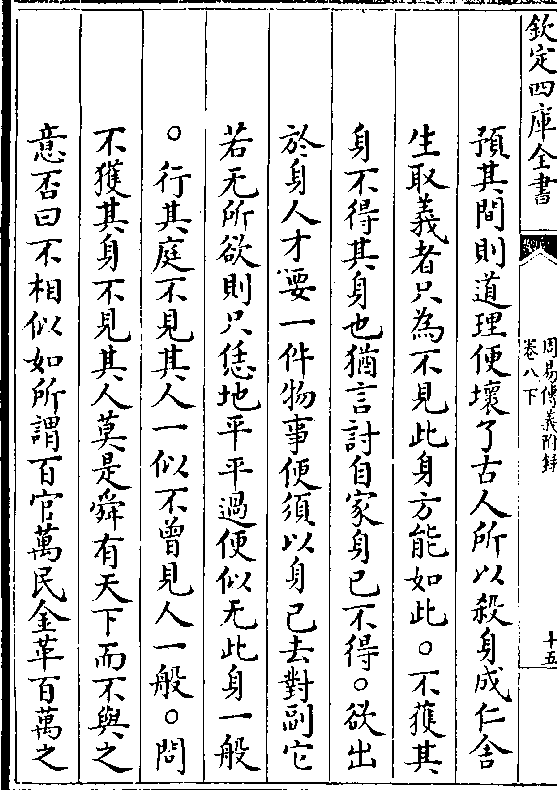 欽定四庫全書
周易傳義附録
卷八下
十五
預其間則道理便壞了古人所以殺身成仁舍
生取義者只為不見此身方能如此。不獲其
身不得其身也猶言討自家身已不得。欲出
於身人才要一件物事便須以身已去對副它
若无所欲則只恁地平平過便似无此身一般
。行其庭不見其人一似不曾見人一般。問
不獲其身不見其人莫是舜有天下而不與之
意否曰不相似如所謂百官萬民金革百萬之